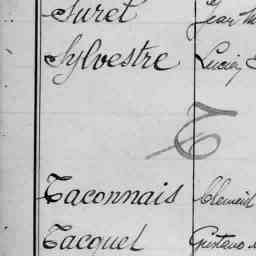 Suret Jean
Sylvestre Lucien
T
Taconnais Clément
Tacquet Gustave